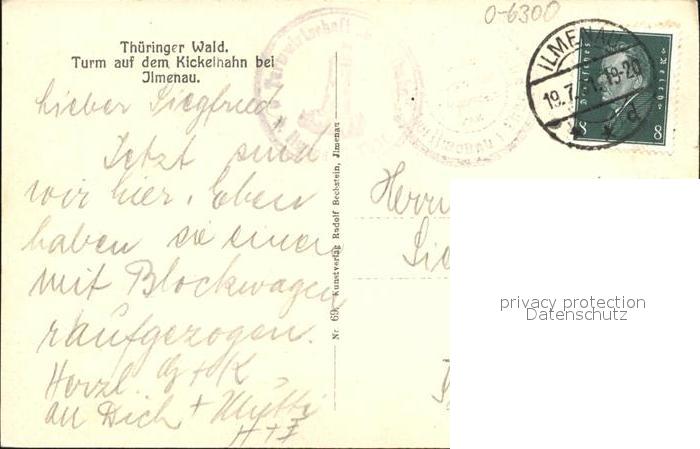 0-6300
Thüringer Wald.
Turm auf dem Kickelhahn bei
Ilmenau.
ILMENAU
19.7.
19-20
d
Deutsches Reich
8 8
Lieber Siegfried
Jetzt sind
wir hier. Eben
haben sie einen
mit Blockwagen
raufgezogen.
Herzl. G + K
an Dich + Mutti
H + I
Nr. 69, Kunstverlag Rudolf Bechstein, Ilmenau
Herrn
privacy protection
Datenschutz